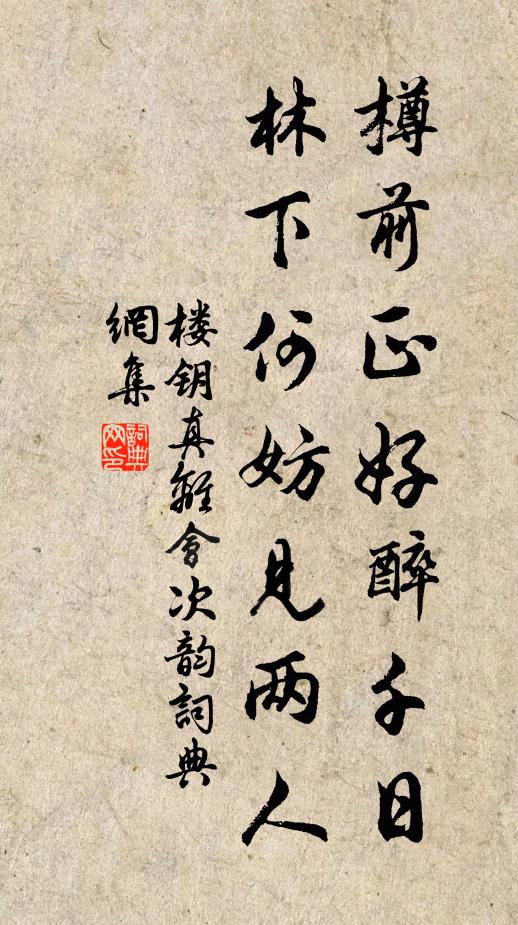 樽前正好醉千日
林下何妨見两人
楼钥真離會次韵詞典
網集
詞典網印